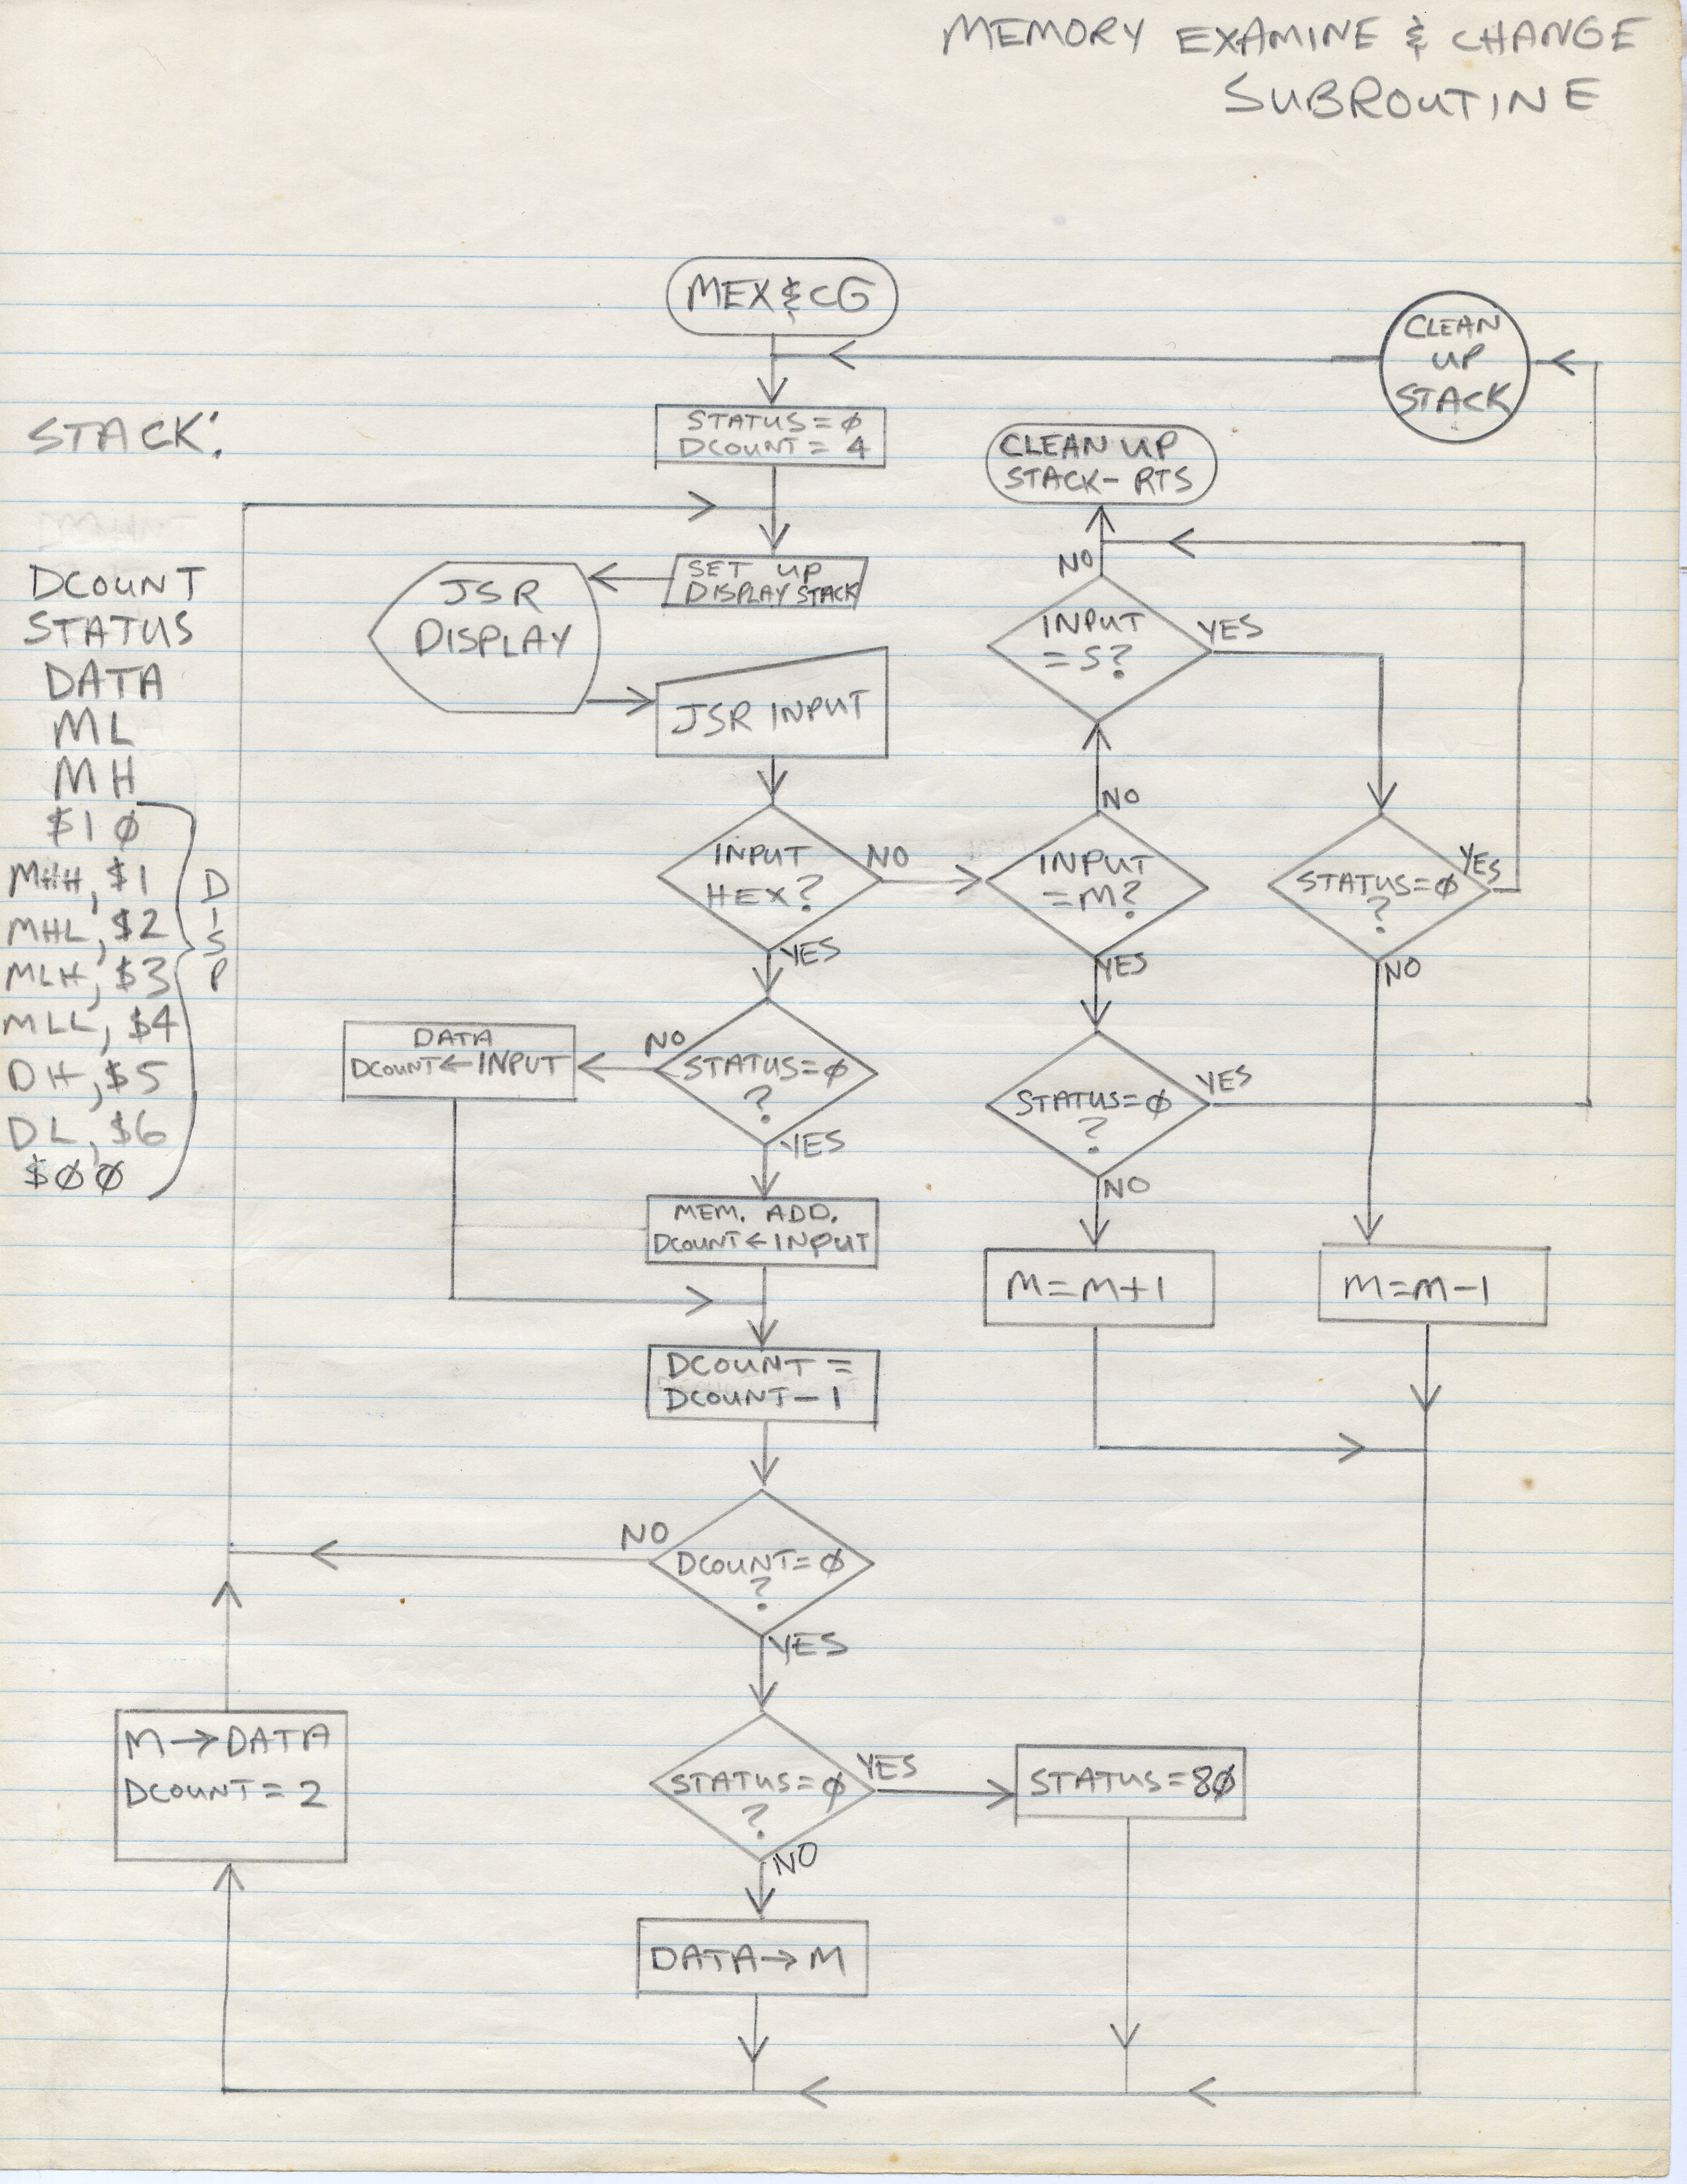 MEMORY EXAMINE & CHANGE
SUBROUTINE
MEX & CG
CLEAN
UP
STACK
STATUS=Ø
DCOUNT=4
CLEAN UP
STACK-RTS
STACK:
DCOUNT
STATUS
DATA
ML
MH
$1Ø
MHH, $1
MHL, $2
MLH, $3
MLL, $4
DH, $5
DL, $6
$ØØ
DISP
SET UP
DISPLAY STACK
JSR
DISPLAY
JSR INPUT
NO
INPUT
=S?
YES
INPUT
HEX?
NO
YES
NO
INPUT
=M?
YES
STATUS=Ø
?
YES
NO
DATA
DCOUNT←INPUT
NO
STATUS=Ø
?
YES
STATUS=Ø
?
YES
NO
MEM. ADD.
DCOUNT←INPUT
M=M+1
M=M-1
DCOUNT=
DCOUNT-1
NO
DCOUNT=Ø
?
YES
M→DATA
DCOUNT=2
STATUS=Ø
?
YES
NO
STATUS=8Ø
DATA→M